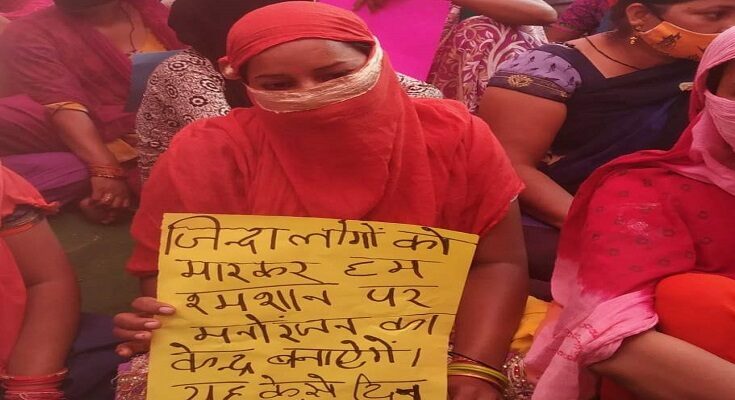 जिन्दा लोगों को
मारकर हम
श्मशान पर
मनोरंजन का
केन्द्र बनाऐगें।
यह कैसे दिन